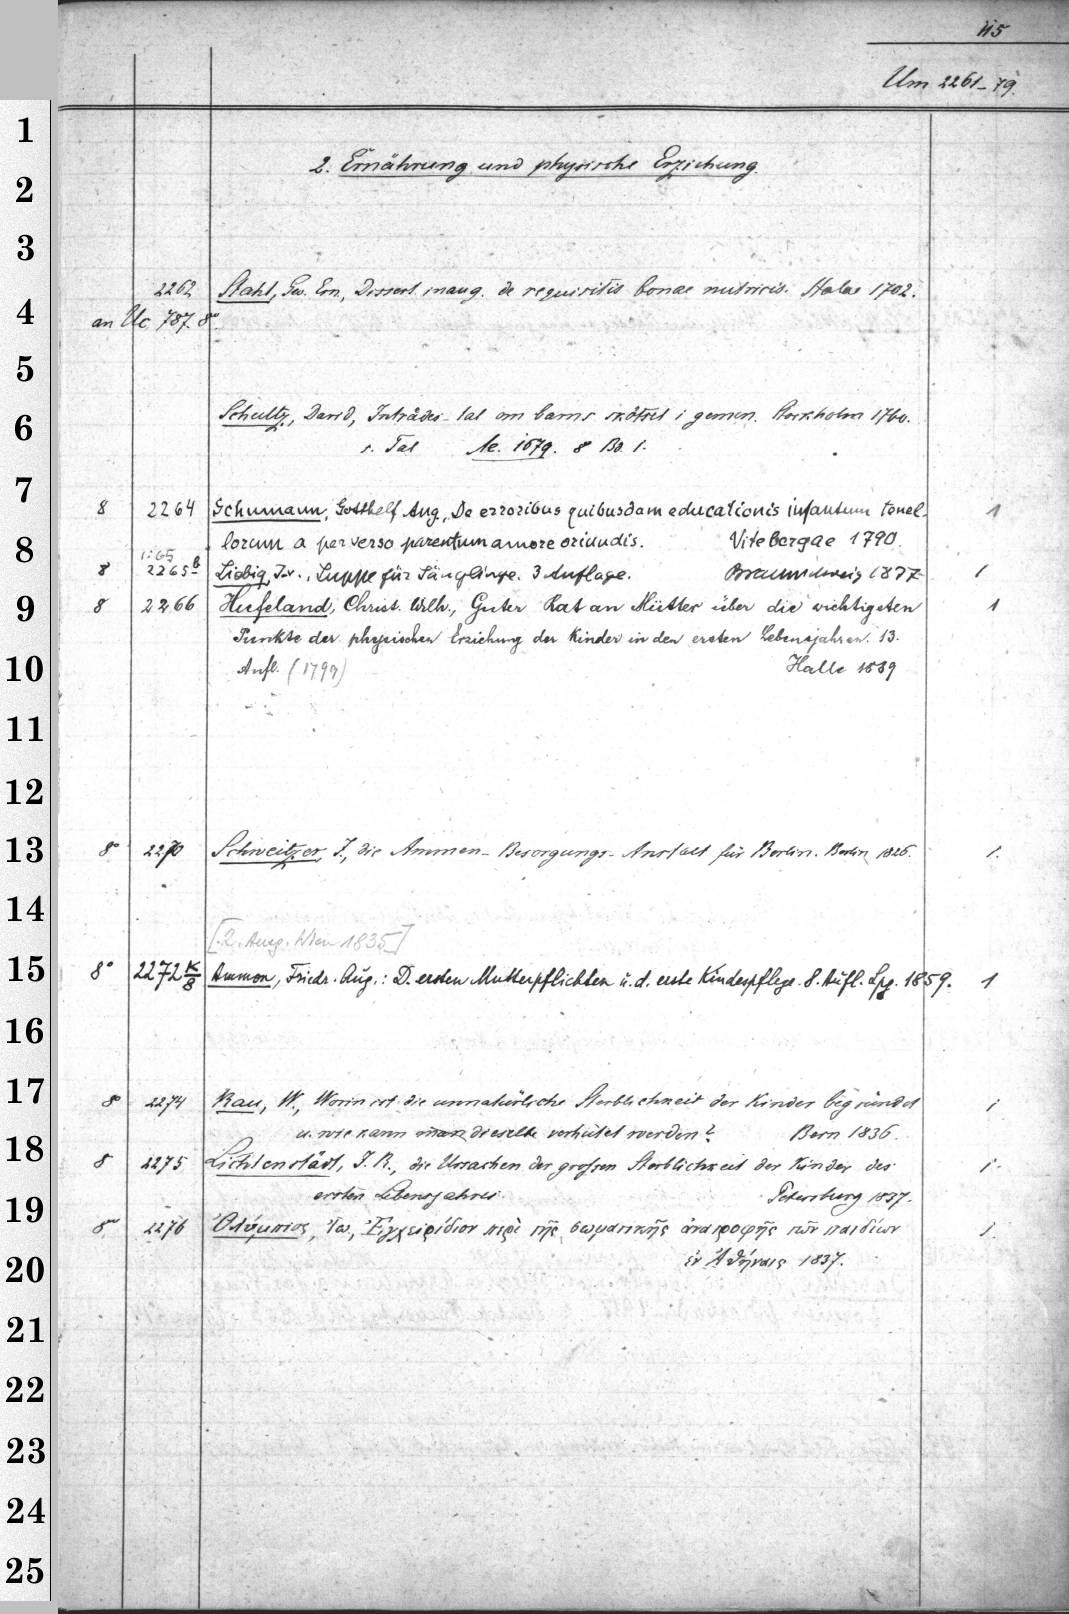 115
Um 2261-79.
2. Ernährung und physische Erziehung.
2262 Stahl, Geo. Ern., Dissert. inaug. de requisitis bonae nutricis. Halae 1702.
an Uc 787. 8°.
Schultz, David, Inträdes-tal om barns skötsel i gemen. Stockholm 1760.
s. Tal Ae. 1679. 8 Bd. 1.
8 2264 Schumann, Gotthelf Aug., De erroribus quibusdam educationis infantum tenel- 1
lorum a perverso parentum amore oriundis. Vitebergae 1790.
8 2265 b Liebig, J. v., Suppe für Säuglinge. 3 Auflage. Braunschweig 1877 1
8 2266 Hufeland, Christ. Wilh., Guter Rat an Mütter über die wichtigsten 1
Punkte der physischen Erziehung der Kinder in den ersten Lebensjahren. 13.
Aufl. (1799) Halle 1889
8° 2270 Schweitzer, J., die Ammen-Besorgungs-Anstalt für Berlin. Berlin 1826. 1.
[2. Ausg. Wien 1835]
8° 2272 K/8 Ammon, Friedr. Aug.: D. ersten Mutterpflichten u. d. erste Kindespflege. 8. Aufl. Lpg. 1859. 1
8° 2274 Rau, W., Worin ist die unnatürliche Sterblichkeit der Kinder begründet 1
u. wie kann man dieselbe verhütet werden? Bern 1836.
8 2275 Lichtenstädt, J. R., die Ursachen der grossen Sterblichkeit der Kinder des 1.
ersten Lebensjahres. Petersburg 1837.
8° 2276 Ὀλύμπιος, Ἰω., Ἐγχειρίδιον περὶ τῆς σωματικῆς ἀνατροφῆς τῶν παιδίων 1.
ἐν Ἀθήναις 1837.